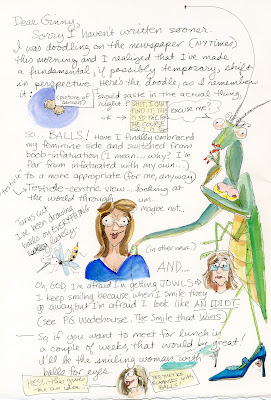 Dear Ginny,
Sorry I haven't written sooner.
I was doodling on the newspaper (NYTimes)
this morning and I realized that I've made
a fundamental, if possibly temporary, shift
in perspective. Here's the doodle, as I remember
it:
(picture of
I should paste in the actual thing,
right?
SHIT. I CAN'T
FIND IT
excuse me?
OK
So... BALLS! Have I finally embraced
my feminine side and switched from
boob-infatuation (I mean... why? I'm
far from infatuated with my own...)
to a more appropriate (for me, anyway)
Testicle-centric view... looking at
the world through... um.
maybe not..
Turns out
I've been drawing
balls on EVERYTHING
lately
(in other news...)
AND...
Oh GOD, I'm afraid I'm getting JOWLS so
I keep smiling because when I smile they
go away but I'm afraid I look like AN IDIOT.
(See P.G. Wodehouse, The Smile that Wins
So if you want to meet for lunch in
a couple of weeks that would be great!
I'll be the smiling woman with
balls for eyes.
Hey! This gives
me an idea!
BALLS?